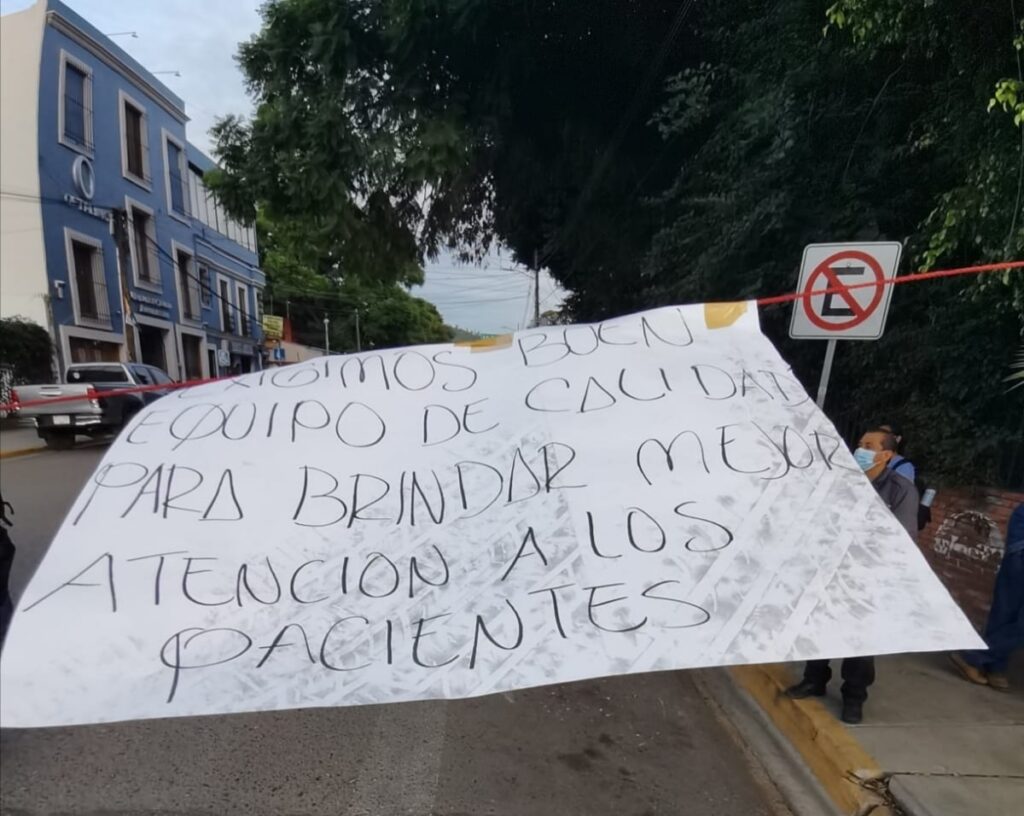 EXIGIMOS BUEN
EQUIPO DE CALIDAD
PARA BRINDAR MEJOR
ATENCION A LOS
PACIENTES
E